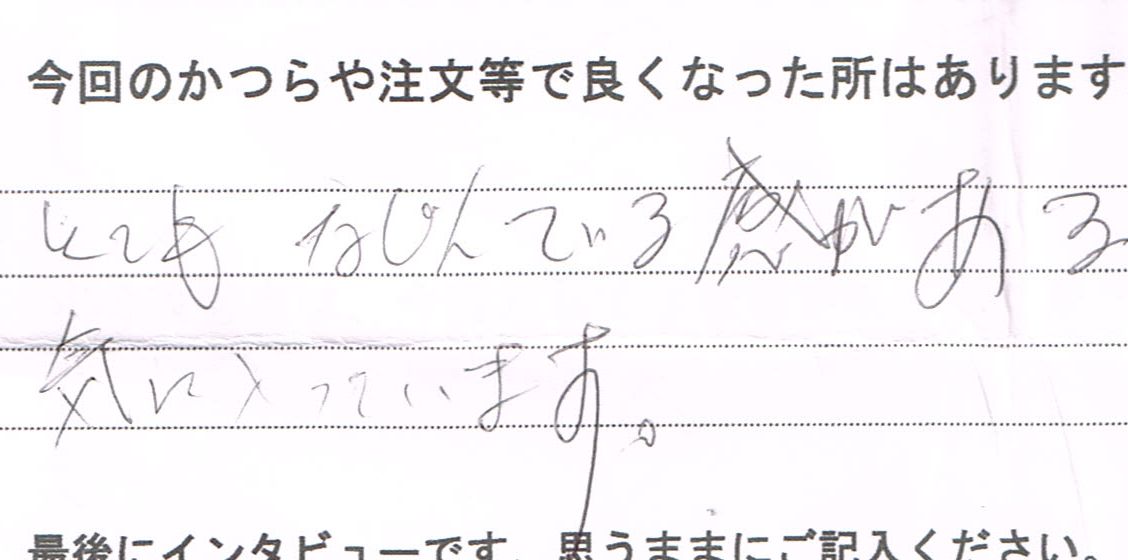 今回のかつらや注文等で良くなった所はあります
とてもなじんでいる感がある
気に入っています。
最後にインタビューです。思うままにご記入ください。